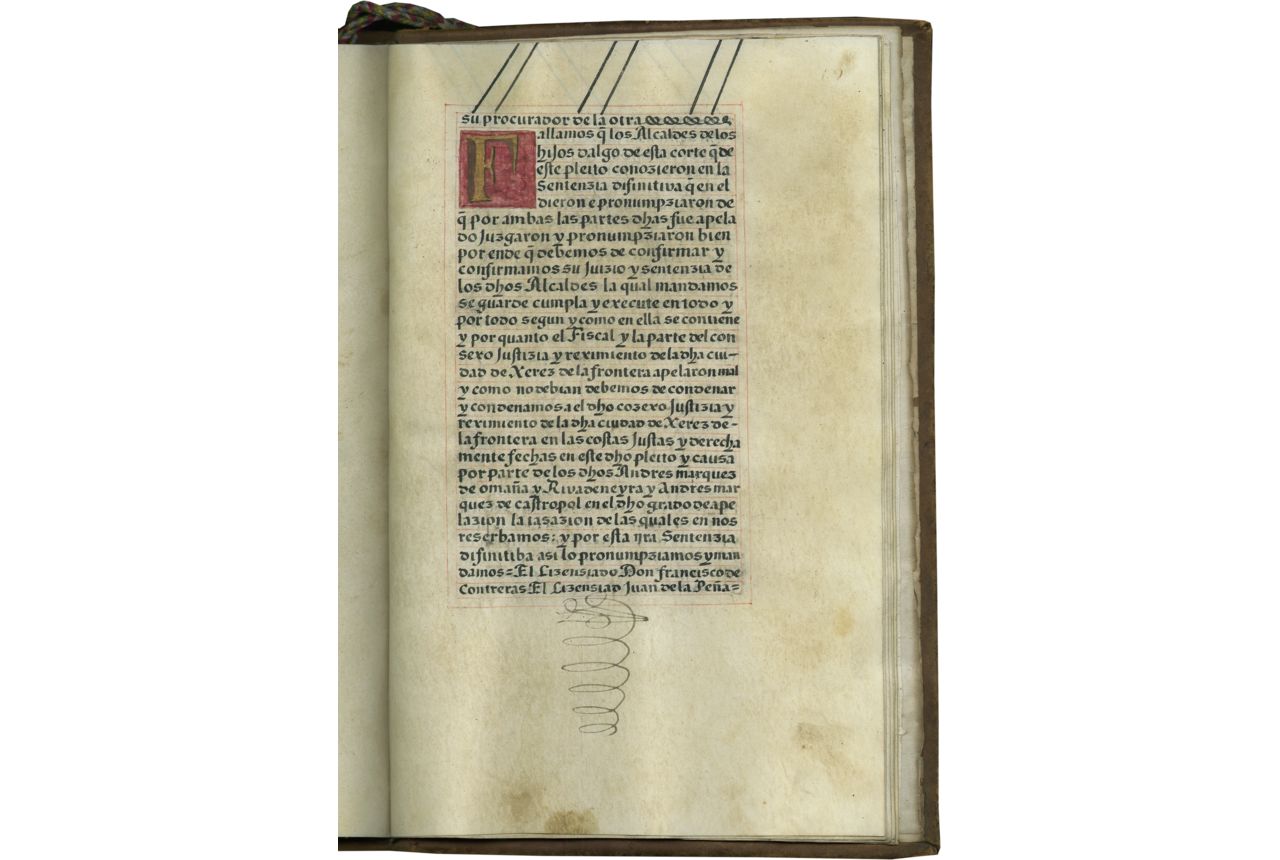 su procurador de la otra
Fallamos q̃ los Alcaldes de los
hijos dalgo de esta corte q̃ de
este pleito conozieron en la
Sentenzia difinitiva q̃ en el
dieron e pronumpziaron de
q̃ por ambas las partes dhas fue apela
do Juzgaron y pronumpziaron bien
por ende q̃ debemos de confirmar y
confirmamos su Juizio y sentenzia de
los dhos Alcaldes la qual mandamos
se guarde cumpla y execute en todo y
por todo segun y como en ella se contiene
y por quanto el Fiscal y la parte del con
sexo Justizia y reximiento de la dha ciu-
dad de Xerez de la frontera apelaron mal
y como no debian debemos de condenar
y condenamos a el dho cozexo Justizia y
reximiento de la dha ciudad de Xerez de-
la frontera en las costas Justas y derecha
mente fechas en este dho pleito y causa
por parte de los dhos Andres marquez
de omaña y Rivadeneyra y Andres mar
quez de castropol en el dho grado de ape
lazion la tasazion de las quales en nos
reserbamos: y por esta nra Sentenzia
difinitiba asi lo pronumpziamos y man
damos = El Lizensiado Don francisco de
Contreras El Lizensiad Juan de la Peña =